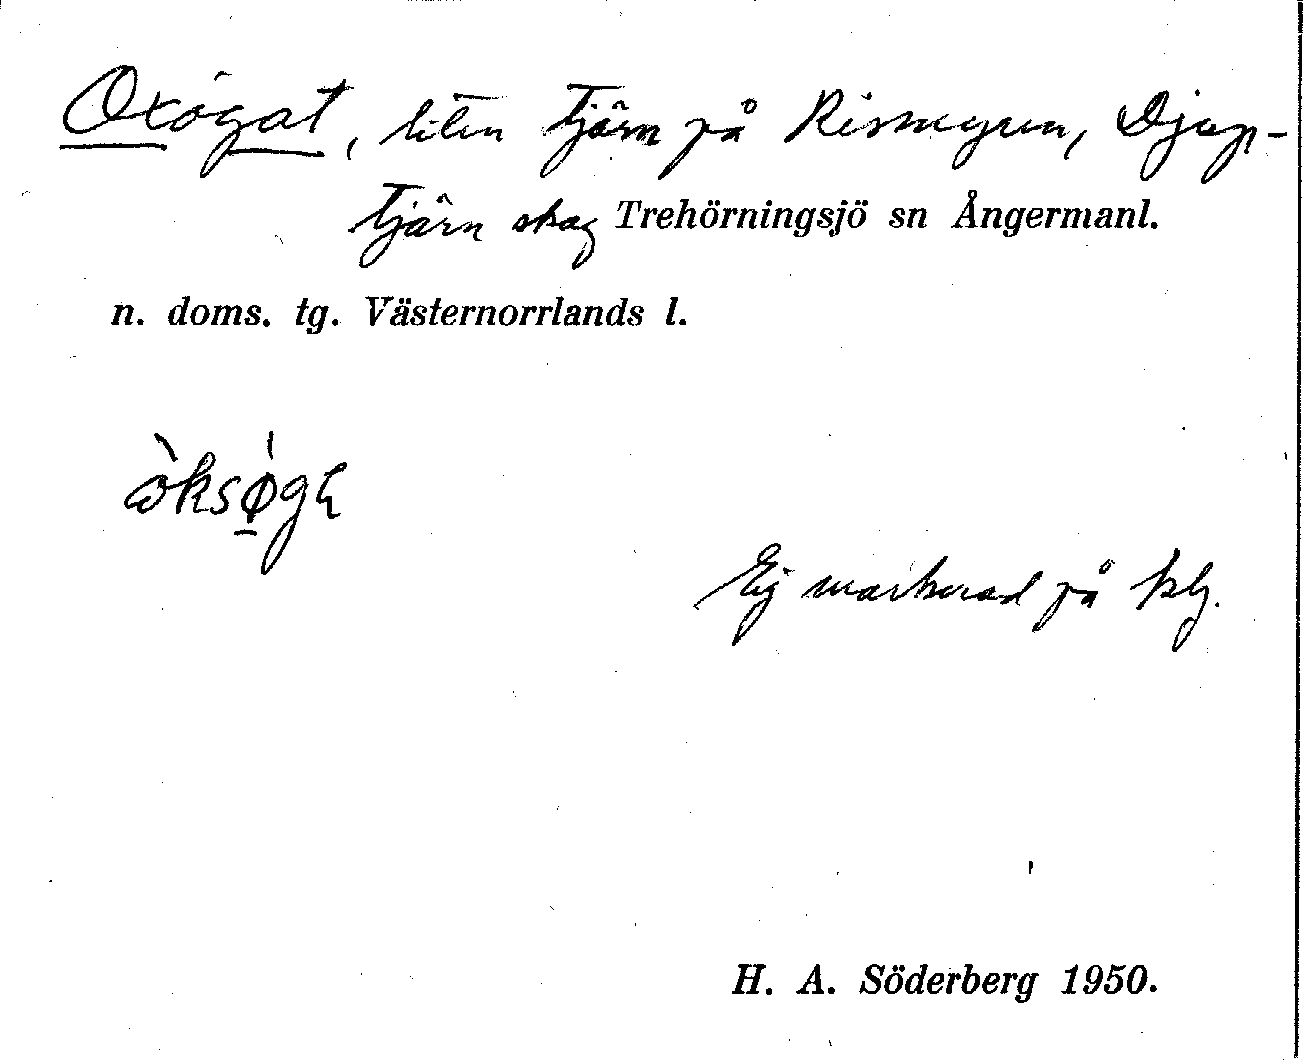 Oxögat, liten tjärn på Rismyren, Djup-
tjärn skog Trehörningsjö sn Ångermanl.
n. doms. tg. Västernorrlands l.
Ej markerad på klg.
H. A. Söderberg 1950.